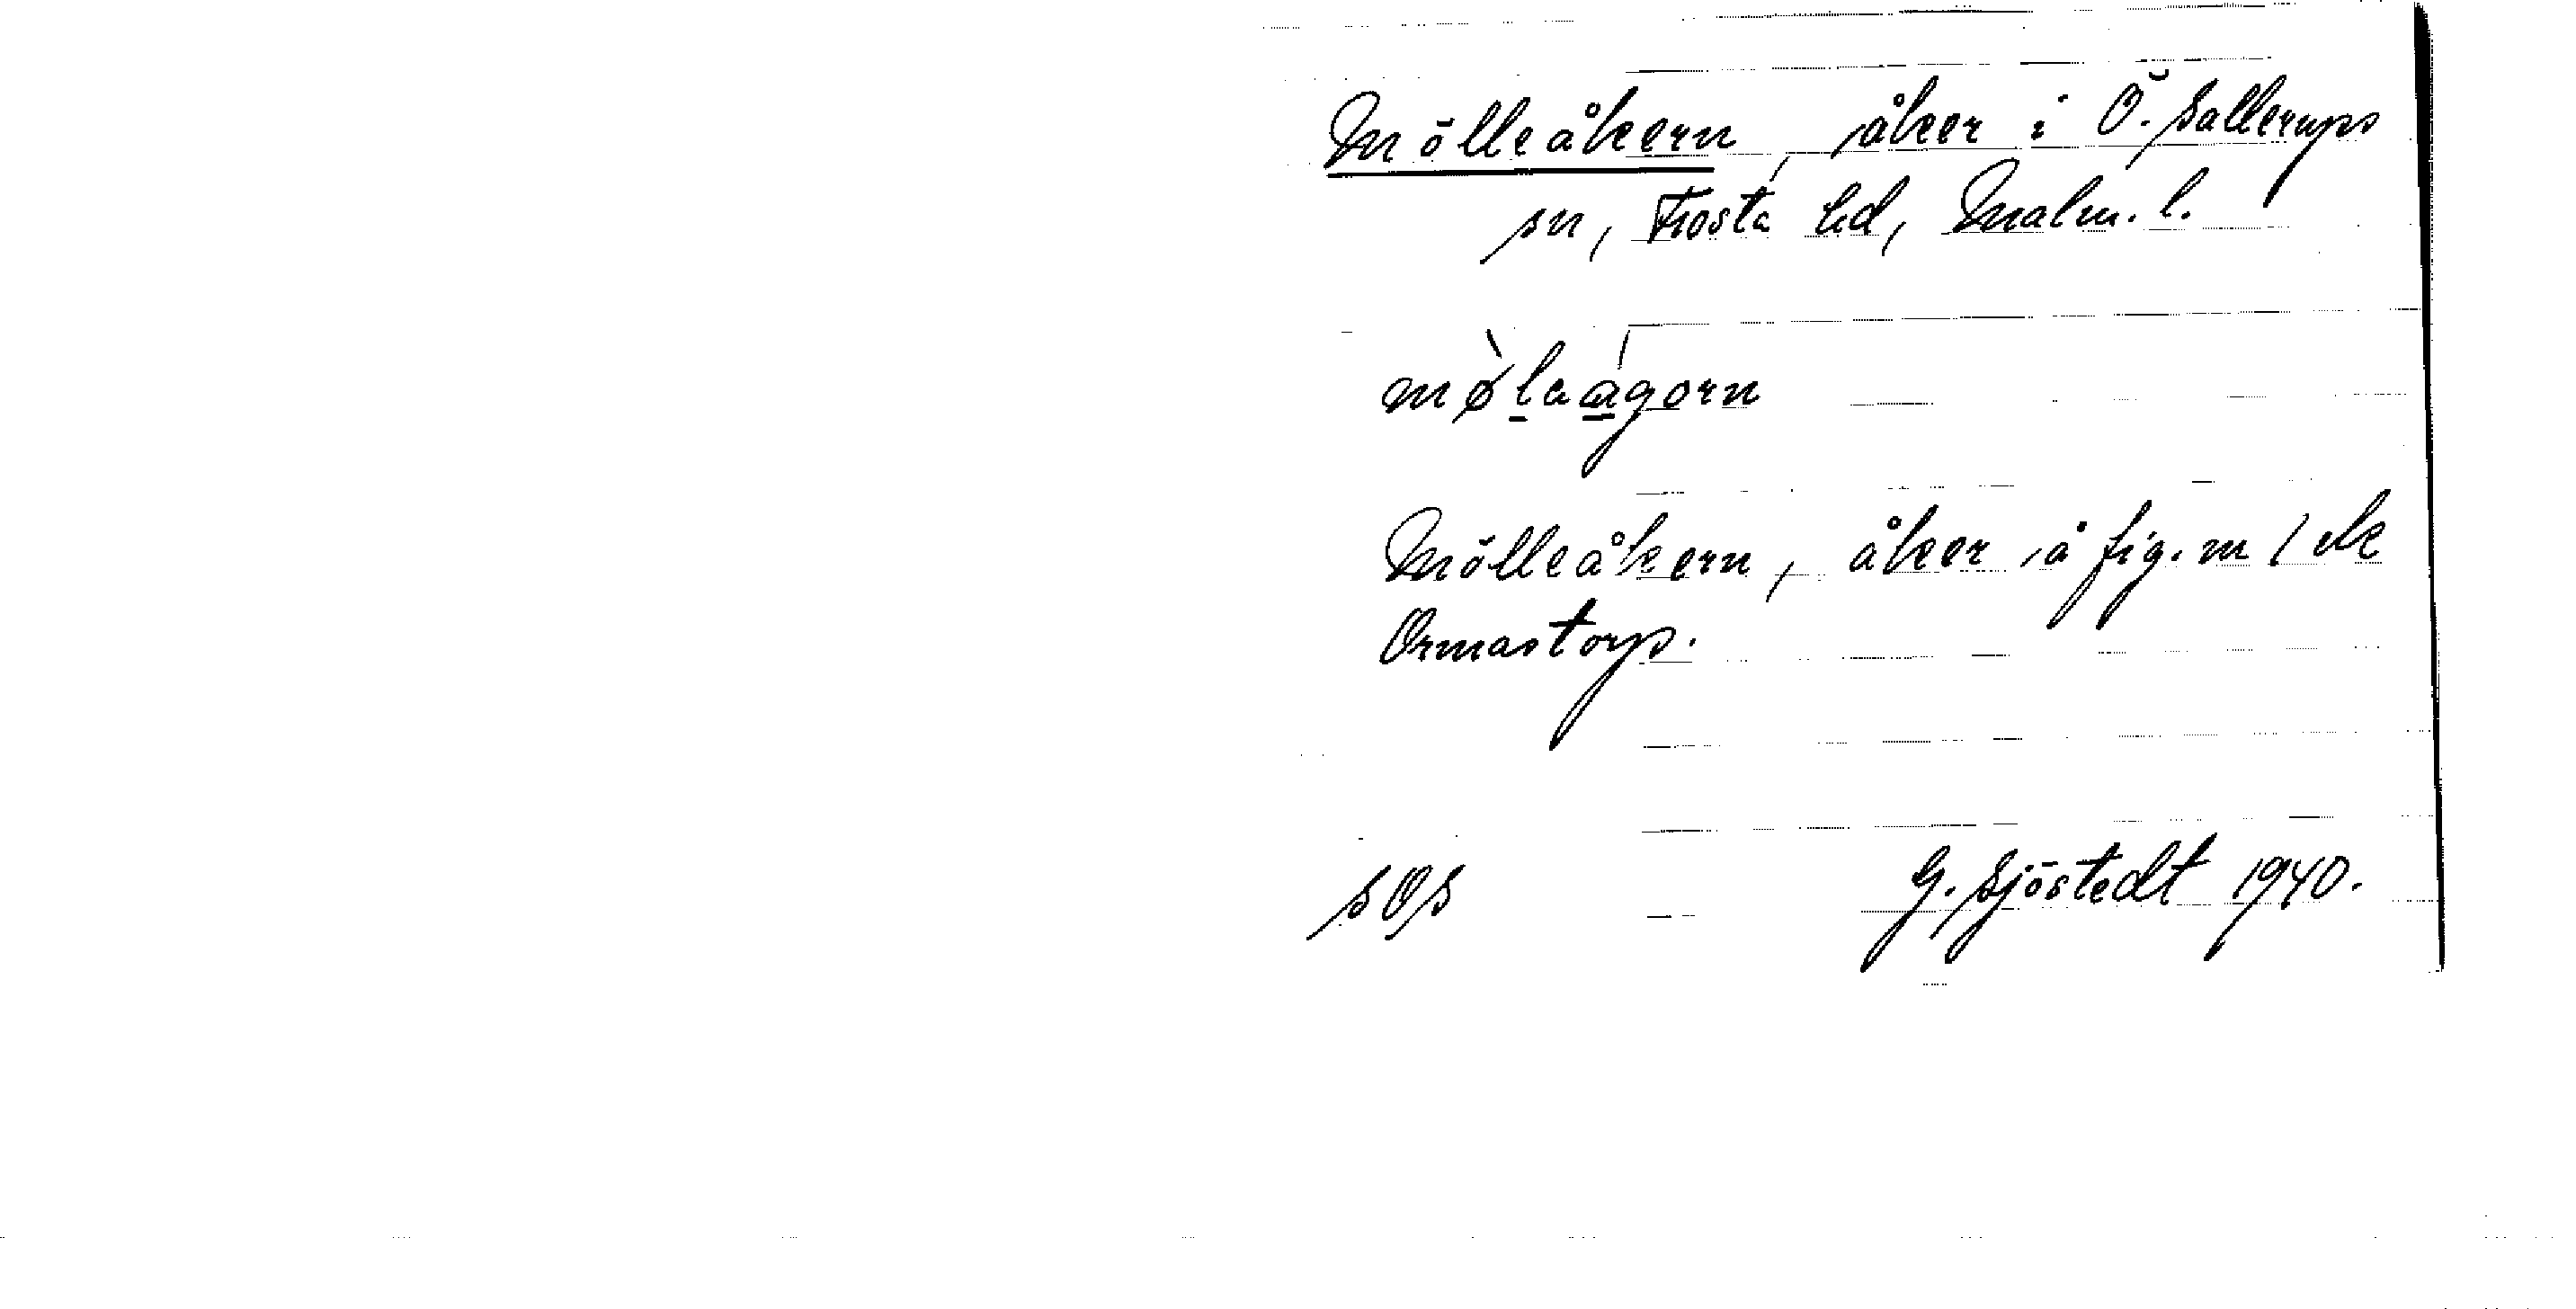 Mölleåkern, åker i Ö. Sallerups
sn, Frosta hd, Malm. l.
mø̀laágorn
Mölleåkern, åker å fig. m 1 ek
Ormastorp.
SOS G. Sjöstedt 1940.